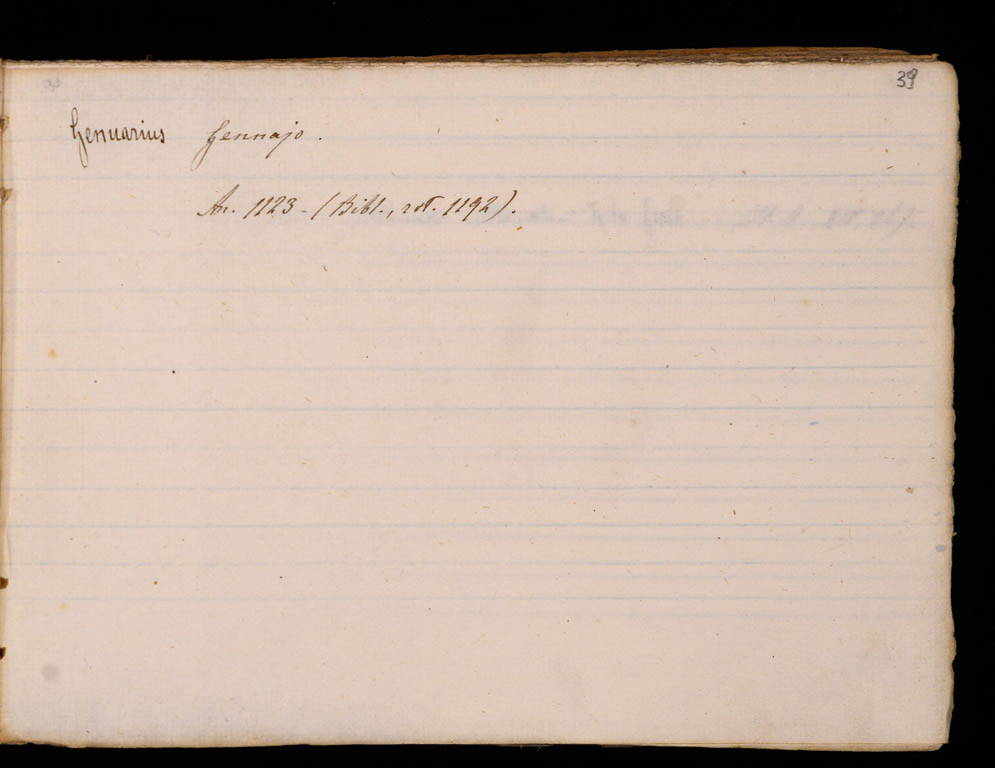 39
Genuarius Gennajo.
An. 1123 - (Bibl., rot. 1192).